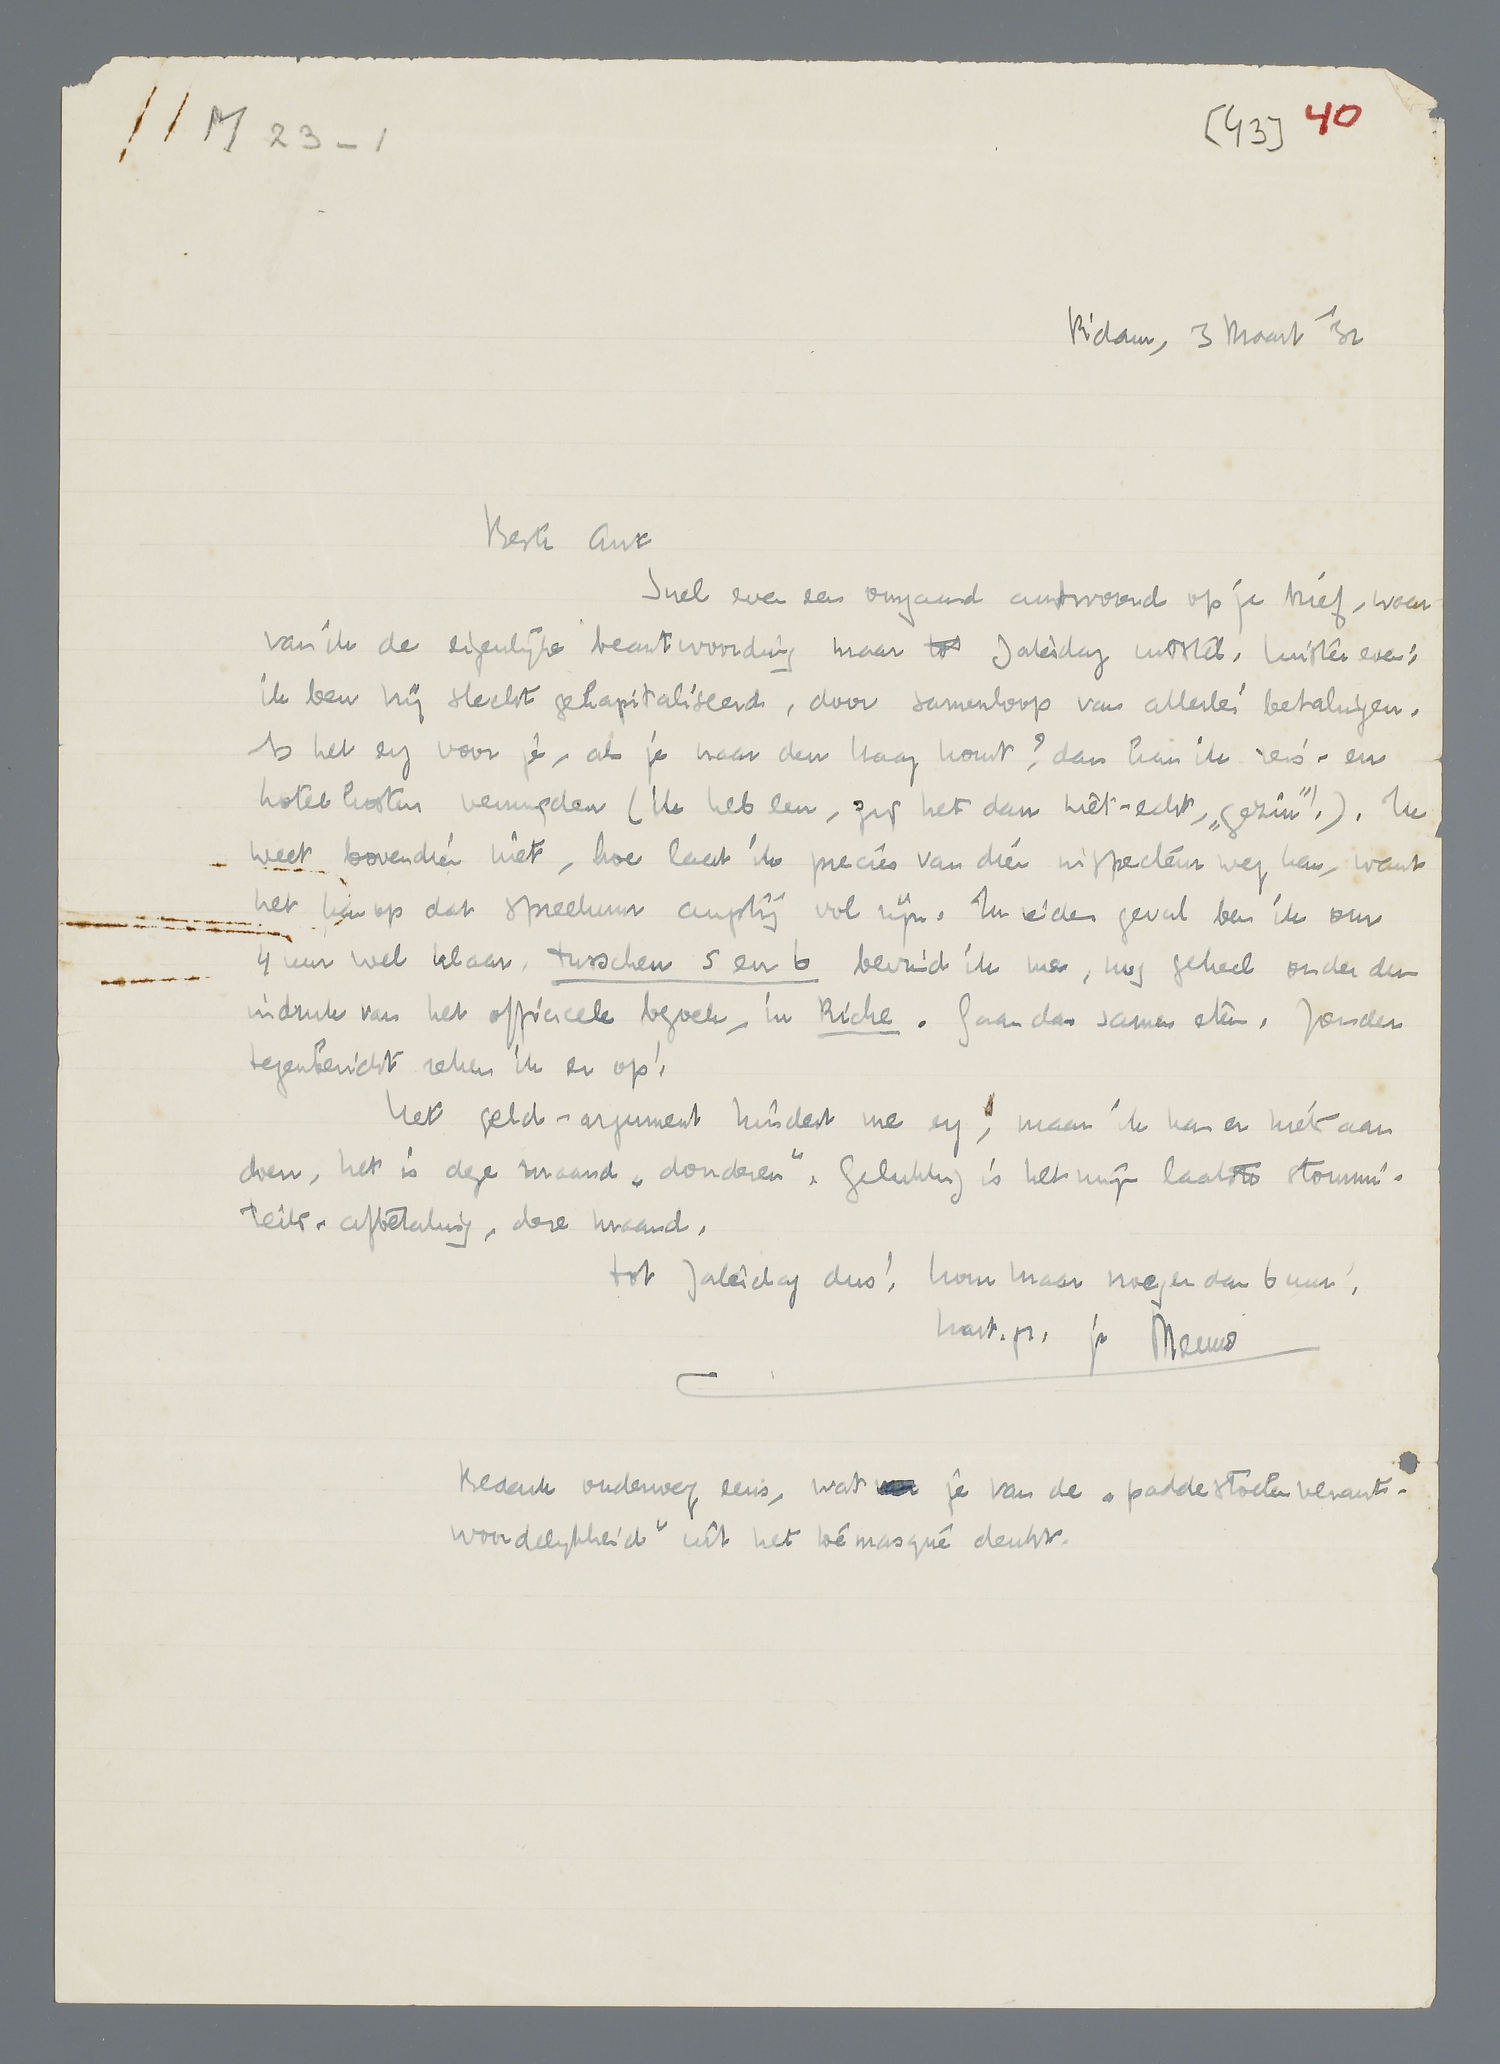 M 23-1
[43] 40
R'dam, 3 Maart '32
Beste Ant
Snel even een omgaand antwoord op je brief, waar
van ik de eigenlijke beantwoording maar tot Zaterdag uitstel. Luister even:
ik ben vrij slecht gekapitaliseerd, door samenloop van allerlei betalingen.
Is het erg voor je, als je naar den Haag komt? dan kan ik reis- en
hotelkosten vermijden (ik heb een, zij het dan niet-echt, „gezin"!). Ik
weet bovendien niet, hoe laat ik precies van dien inspecteur weg kan, want
het kan op dat spreekuur aardig vol zijn. In ieder geval ben ik om
4 uur wel klaar. tusschen 5 en 6 bevind ik me, nog geheel onder den
indruk van het officieele bezoek, in Riche. Gaan dan samen eten. Zonder
tegenbericht reken ik er op!
Het geld-argument hindert me erg, maar ik kan er niet aan
doen, het is deze maand „donderen". Gelukkig is het mijn laatste stommi-
teits-afbetaling, deze maand.
tot Zaterdag dus! kom maar vroeger dan 6 uur!
hart. gr. je Menno
Bedenk onderweg eens, wat je van de „paddestoelenverant-
woordelijkheid" uit het Démasqué denkt.